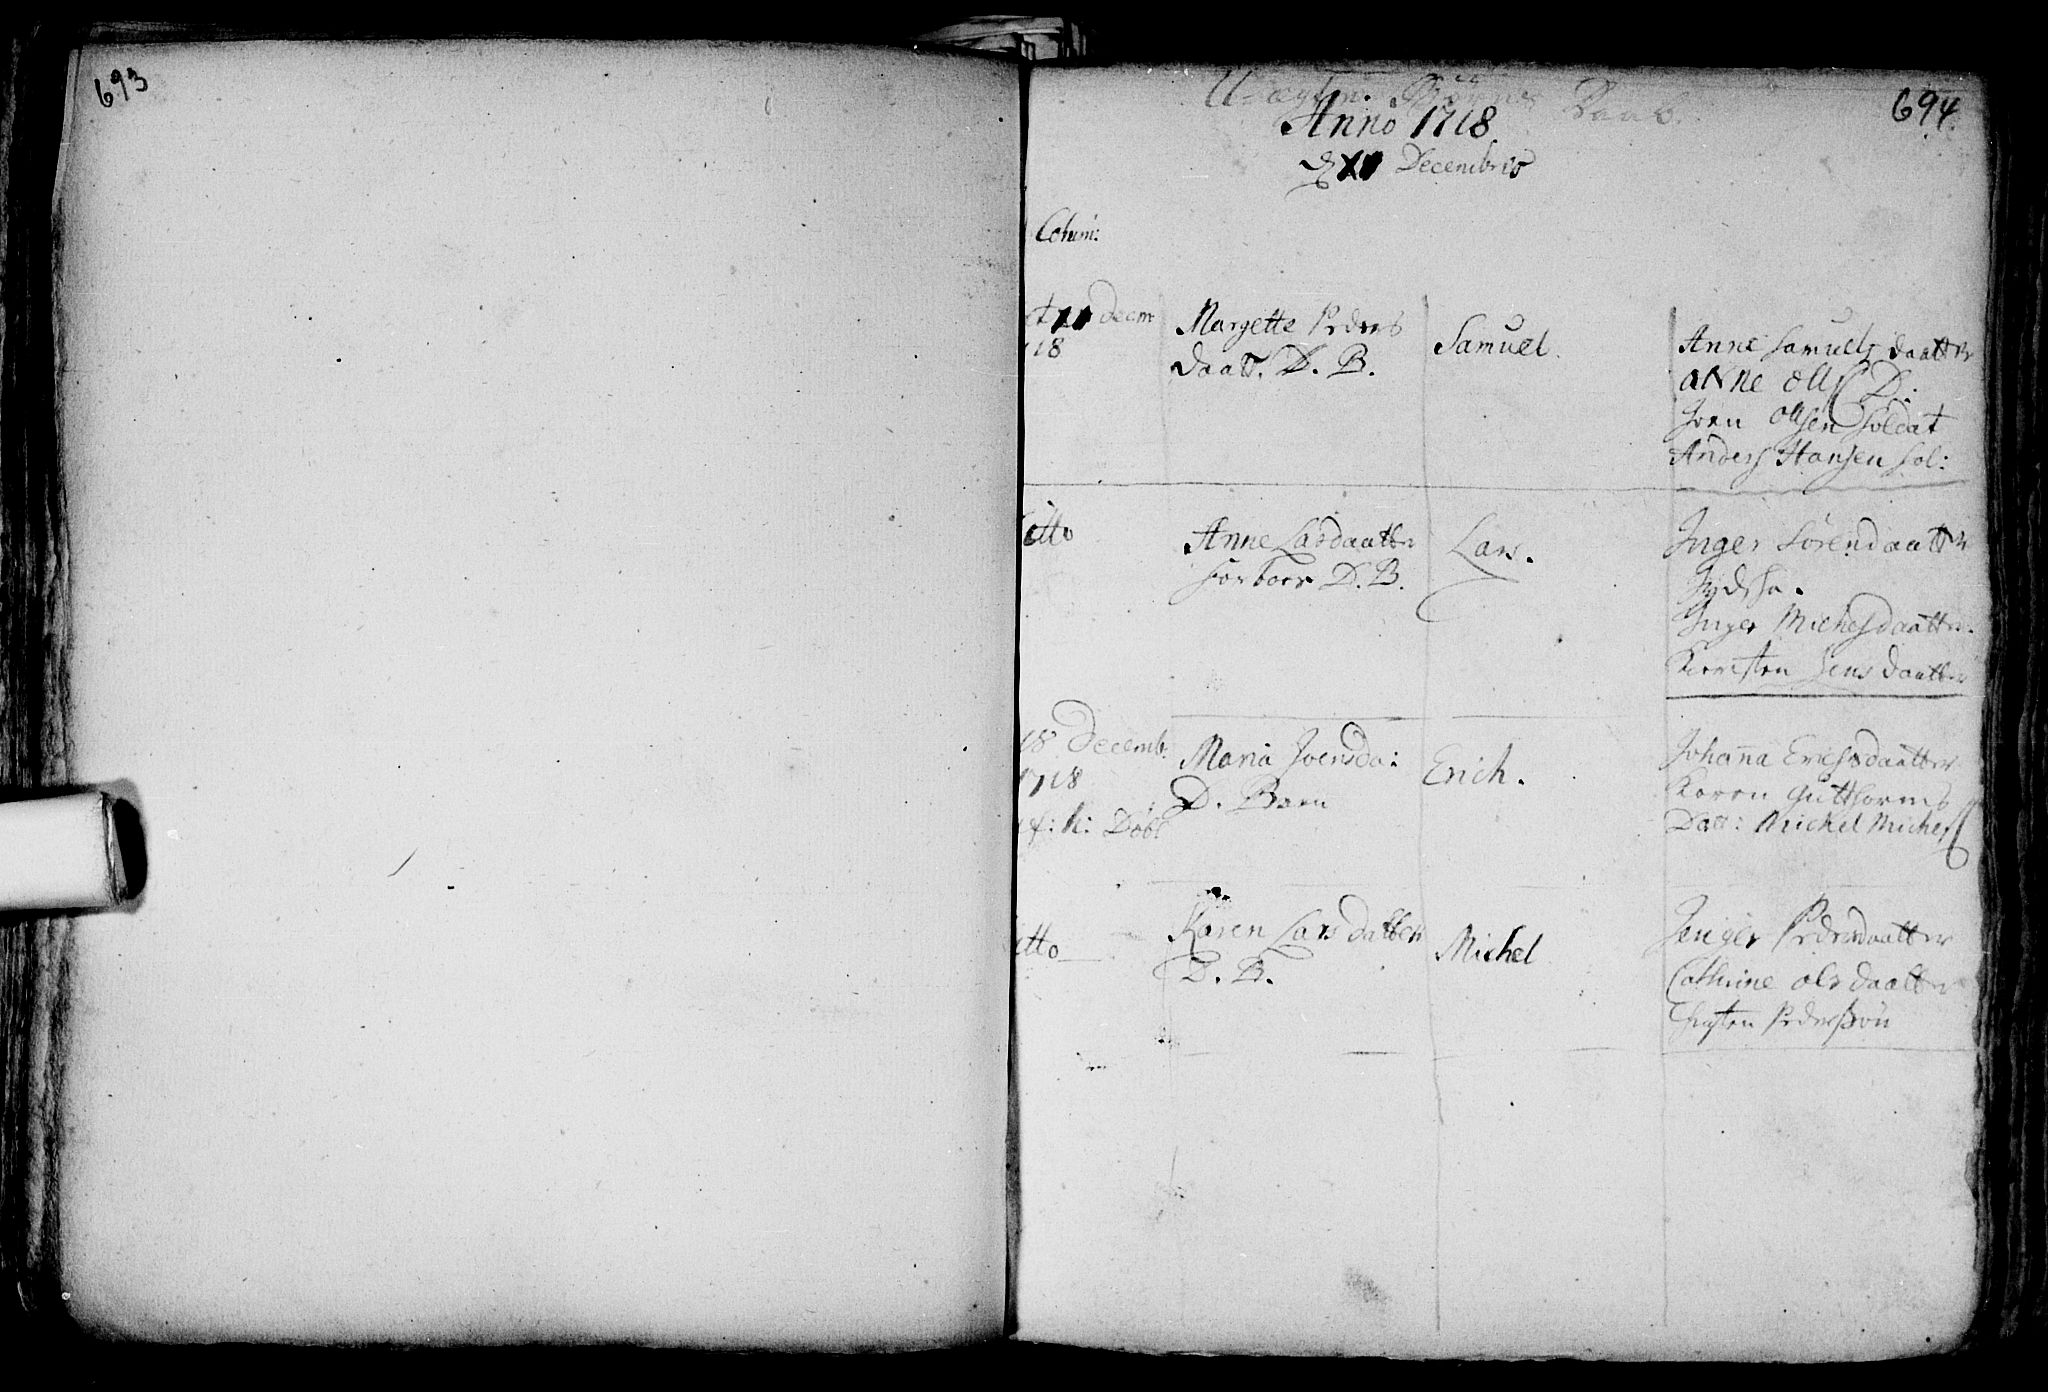 693
694
Anno 1718
Decembris
Colum:
Decm
18
Margette Peders
daatt. D. B.
Samuel.
Anne Samuels daatter
anne Olls D:
Joen Olsen Soldat
Anders Hansen Sol:
ditto
Anne Lasdaatter
D. B.
Lars.
Inger Sørendaatter
Inger Michelsdaatter.
Kiersten Jensdaatter
18 Decemb.
1718
Maria Joensda:
D. Barn
Erich.
Johanna Erichsdaatter
Karen Gutthorms
Datt: Mickel Michels
ditto
Karen Lars datter
D. B.
Michel
Pedersdaatter
Cathrine Olsdaatter
Pedersøn